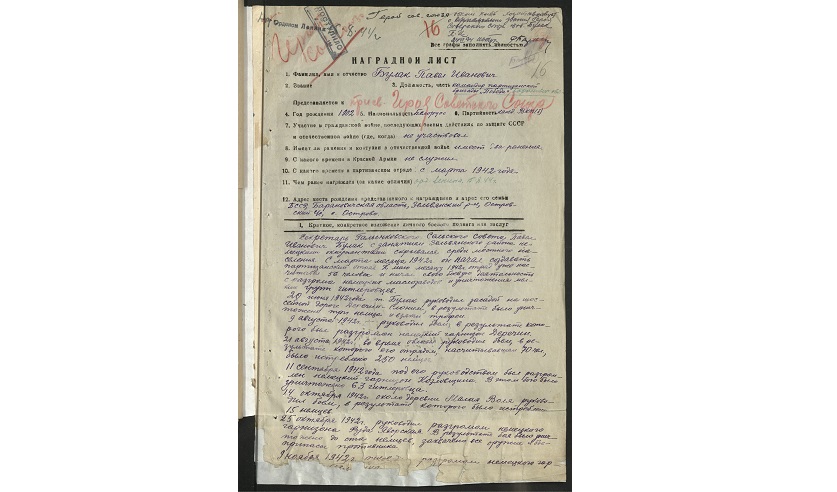 Герой Сов. Союза
Ордена Ленина
16
Все графы заполнять полностью
НАГРАДНОЙ ЛИСТ
1. Фамилия, имя и отчество Булак Павел Иванович
2. Звание 3. Должность, часть командир партизанской
бригады „Победа"
Представляется к присв. Героя Советского Союза
4. Год рождения 1902 5. Национальность белорус 6. Партийность
7. Участие в гражданской войне, последующих боевых действиях по защите СССР
и отечественной войне (где, когда) не участвовал
8. Имеет ли ранения и контузии в отечественной войне имеет два ранения
9. С какого времени в Красной Армии не служил
10. С какого времени в партизанском отряде с марта 1942 года
11. Чем ранее награжден (за какие отличия)
12. Адрес места рождения представляемого к награждению и адрес его семьи
БССР, Барановичская область, Зельвянский р-н, Остров-
ский с/с, д. Острово
I. Краткое, конкретное изложение личного боевого подвига или заслуг
Секретарь Сельского Совета Павел
Иванович Булак с занятием Зельвянского района не-
мецкими оккупантами скрывался среди местного на-
селения. С марта месяца 1942 г. он начал создавать
партизанский отряд. К маю месяцу 1942 г. отряд уже нас-
читывал 50 человек и начал свою боевую деятельность
с разгрома немецкого маслозавода и уничтожения мел-
ких групп гитлеровцев.
20 июня 1942 года т. Булак руководил засадой на шос-
сейной дороге Деречин-Слоним, в результате было унич-
тожено три немца и взяты трофеи.
9 августа 1942 г. руководил боем, в результате кото-
рого был разгромлен немецкий гарнизон Деречин.
21 августа 1942 г. во время облавы руководил боем, в ре-
зультате которого его отрядом, насчитывавшем 70 чел.,
было истреблено 250 немцев.
11 сентября 1942 года под его руководством был разгром-
лен немецкий гарнизон Козловщина. В этом бою было
уничтожено 63 гитлеровца.
14 октября 1942 г. около деревни Малая Воля руково-
дил боем, в результате которого было истреблено
15 немцев.
25 октября 1942 г. руководил разгромом немецкого
гарнизона Руда Яворская. В результате боя было унич-
тожено до ста немцев, захвачено все оружие и бое-
припасы противника.
9 ноября 1942 разгромом немецкого гар-